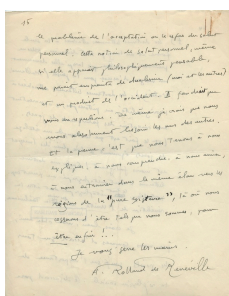 15
le problème de l'acceptation ou le refus du salut
personnel. Cette notion de salut personnel, même
si elle apparaît philosophiquement pensable,
me paraît empreinte de dualisme (moi et les autres)
et un produit de l'occident. Il faudrait que
nous ne
nous avons absolument besoin les uns des autres,
et la preuve c'est que nous tenons à nous
expliquer, à nous comprendre, à nous aimer,
à nous entraîner dans le même élan vers les
régions de la "pure existence", là où nous
cessons d'être tels que nous sommes, pour
être, enfin !!.
Je vous serre les mains.
A. Rolland de Renéville